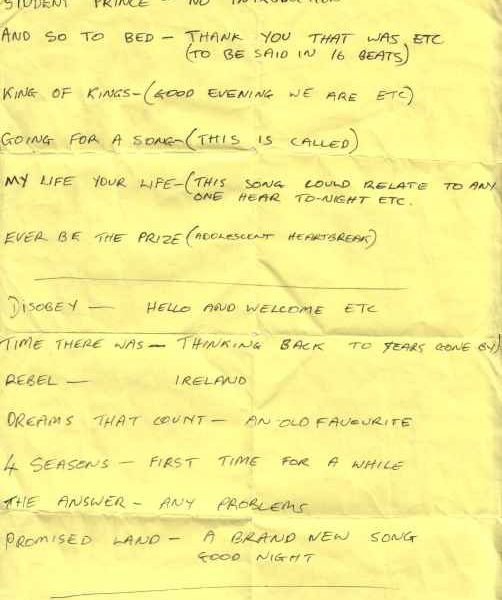 STUDENT PRINCE - NO INTRODUCTION
AND SO TO BED - THANK YOU THAT WAS ETC
(TO BE SAID IN 16 BEATS)
KING OF KINGS-(GOOD EVENING WE ARE ETC)
GOING FOR A SONG-(THIS IS CALLED)
MY LIFE YOUR LIFE-(THIS SONG COULD RELATE TO ANY
ONE HEAR TO-NIGHT ETC.
EVER BE THE PRIZE (ADOLESCENT HEARTBREAK)
DISOBEY - HELLO AND WELCOME ETC
TIME THERE WAS - THINKING BACK TO YEARS GONE BY)
REBEL - IRELAND
DREAMS THAT COUNT - AN OLD FAVOURITE
4 SEASONS - FIRST TIME FOR A WHILE
THE ANSWER - ANY PROBLEMS
PROMISED LAND - A BRAND NEW SONG
GOOD NIGHT